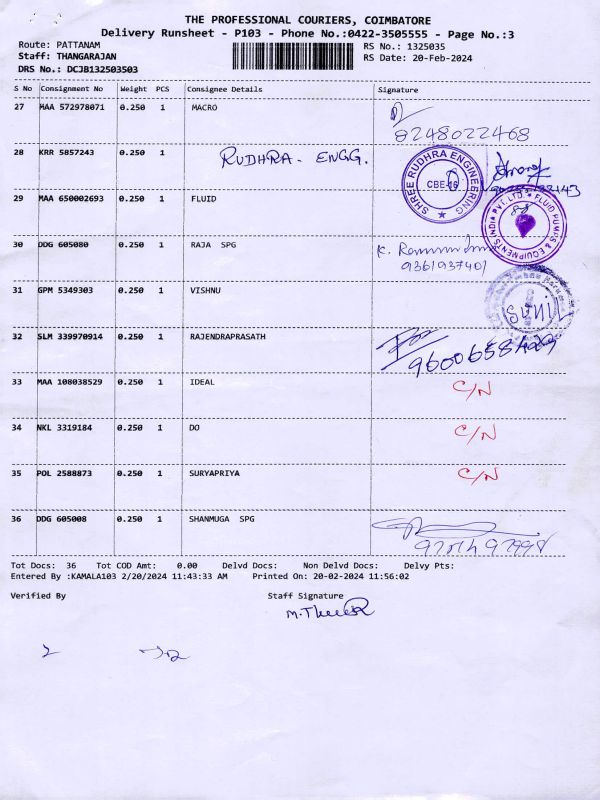 THE PROFESSIONAL COURIERS, COIMBATORE
Delivery Runsheet - P103 - Phone No.:0422-3505555 - Page No.:3
Route: PATTANAM RS No.: 1325035
Staff: THANGARAJAN RS Date: 20-Feb-2024
DRS No.: DCJB132503503
S No Consignment No Weight PCS Consignee Details Signature
27 MAA 572978071 0.250 1 MACRO
8248022468
28 KRR 5857243 0.250 1 RUDHRA - ENGG.
SHREE RUDHRA ENGINEERING
CBE-16
29 MAA 650002693 0.250 1 FLUID
FLUID PUMPS & EQUIPMENTS (INDIA) PVT. LTD.
30 DDG 605080 0.250 1 RAJA SPG
9361937401
31 GPM 5349303 0.250 1 VISHNU
SUNIL
32 SLM 339970914 0.250 1 RAJENDRAPRASATH
33 MAA 108038529 0.250 1 IDEAL C/N
34 NKL 3319184 0.250 1 DO C/N
35 POL 2588873 0.250 1 SURYAPRIYA C/N
36 DDG 605008 0.250 1 SHANMUGA SPG
Tot Docs: 36 Tot COD Amt: 0.00 Delvd Docs: Non Delvd Docs: Delvy Pts:
Entered By :KAMALA103 2/20/2024 11:43:33 AM Printed On: 20-02-2024 11:56:02
Verified By Staff Signature